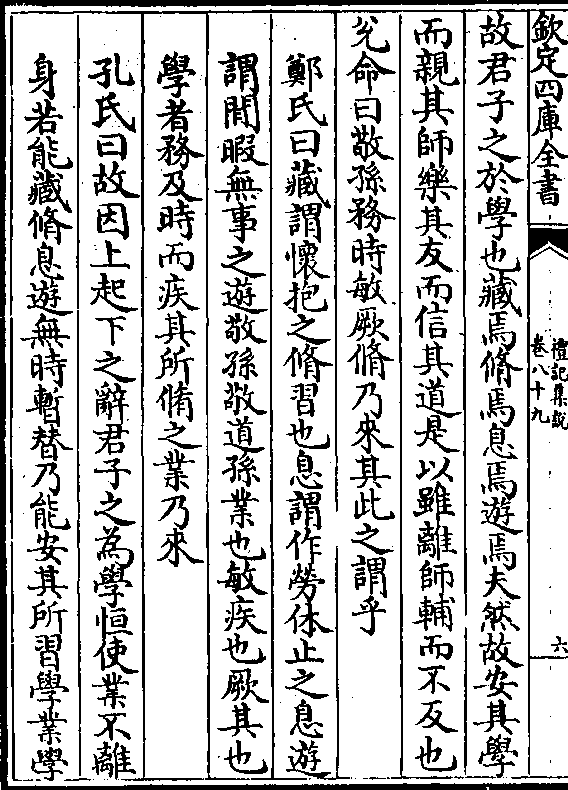 欽定四庫全書
禮記集說
卷八十九
六
故君子之於學也藏焉脩焉息焉遊焉夫然故安其學
而親其師樂其友而信其道是以雖離師輔而不反也
兊命曰敬孫務時敏厥脩乃來其此之謂乎
鄭氏曰藏謂懷抱之脩習也息謂作勞休止之息遊
謂閒暇無事之遊敬孫敬道孫業也敏疾也厥其也
學者務及時而疾其所脩之業乃來
孔氏曰故因上起下之辭君子之為學恒使業不離
身若能藏脩息遊無時暫替乃能安其所習學業學